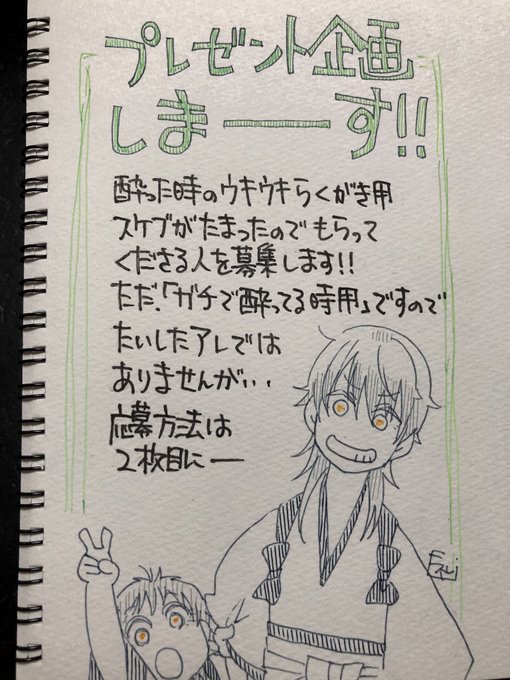 プレゼント企画
しまーーす!!
酔った時のウキウキらくがき用
スケブがたまったのでもらって
くださる人を募集します!!
ただ、「ガチで酔ってる時用」ですので
たいしたアレでは
ありませんが・・
応募方法は
2枚目にー